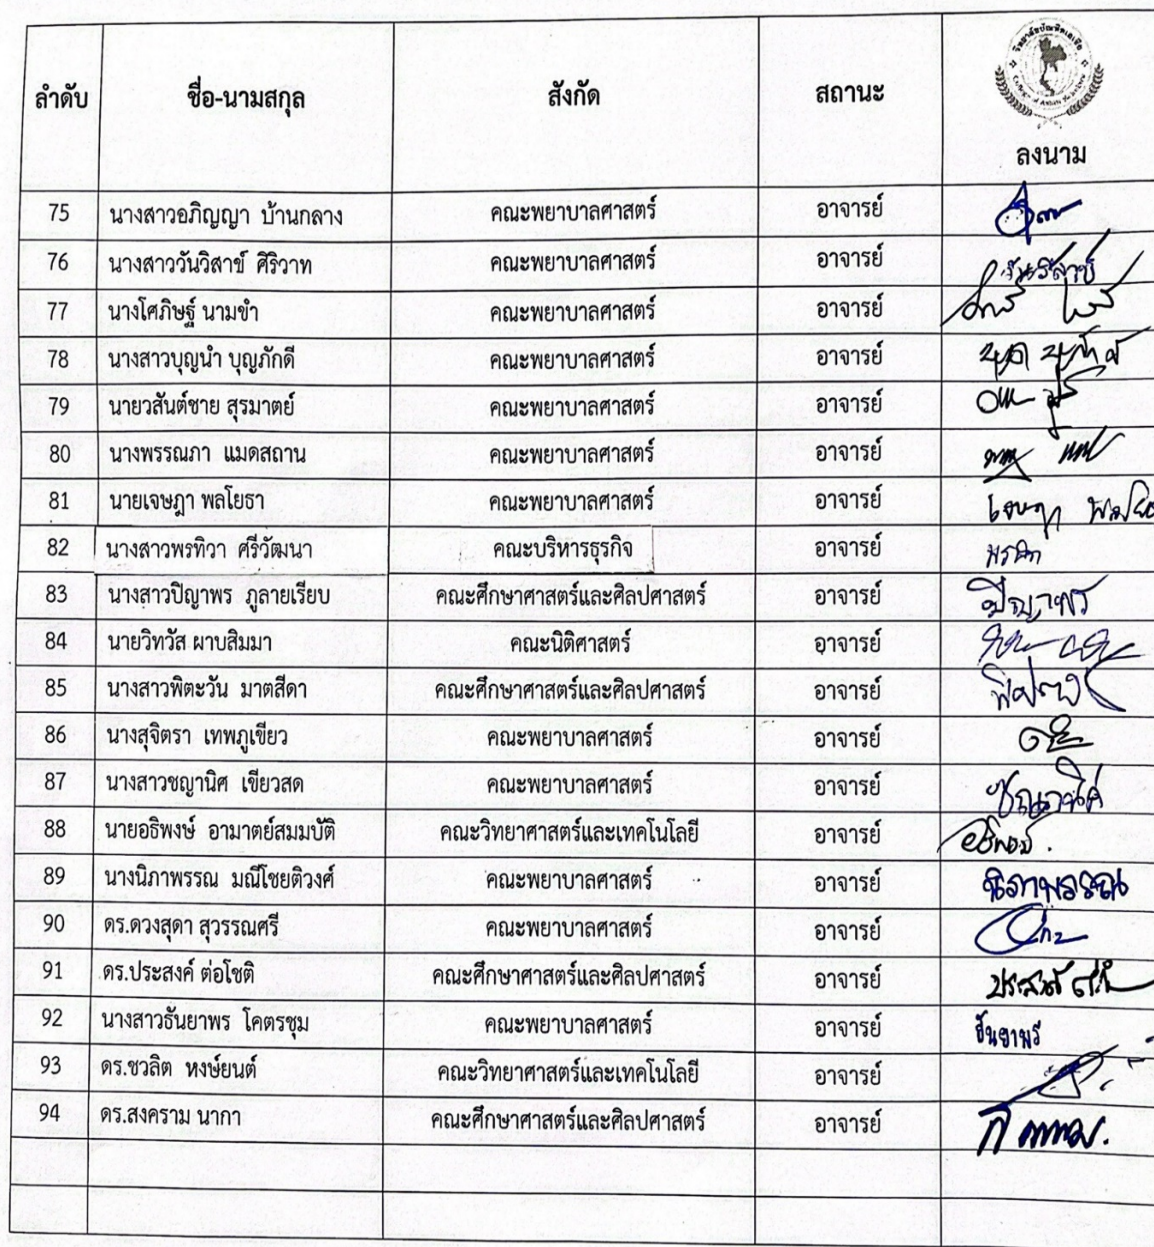 ลำดับ ชื่อ-นามสกุล สังกัด สถานะ ลงนาม
75 นางสาวอภิญญา บ้านกลาง คณะพยาบาลศาสตร์ อาจารย์
76 นางสาววันวิสาข์ ศิริวาท คณะพยาบาลศาสตร์ อาจารย์ วันวิสาข์
77 นางโศภิษฐ์ นามขำ คณะพยาบาลศาสตร์ อาจารย์
78 นางสาวบุญนำ บุญภักดี คณะพยาบาลศาสตร์ อาจารย์
79 นายวสันต์ชาย สุรมาตย์ คณะพยาบาลศาสตร์ อาจารย์
80 นางพรรณภา แมดสถาน คณะพยาบาลศาสตร์ อาจารย์
81 นายเจษฎา พลโยธา คณะพยาบาลศาสตร์ อาจารย์ เจษฎา
82 นางสาวพรทิวา ศรีวัฒนา คณะบริหารธุรกิจ อาจารย์
83 นางสาวปิญาพร ภูลายเรียบ คณะศึกษาศาสตร์และศิลปศาสตร์ อาจารย์ ปิญาพร
84 นายวิทวัส ผาบสิมมา คณะนิติศาสตร์ อาจารย์
85 นางสาวพิตะวัน มาตสีดา คณะศึกษาศาสตร์และศิลปศาสตร์ อาจารย์
86 นางสุจิตรา เทพภูเขียว คณะพยาบาลศาสตร์ อาจารย์
87 นางสาวชญานิศ เขียวสด คณะพยาบาลศาสตร์ อาจารย์ ชญานิศ
88 นายอธิพงษ์ อามาตย์สมมบัติ คณะวิทยาศาสตร์และเทคโนโลยี อาจารย์ อธิพงษ์
89 นางนิภาพรรณ มณีโชยติวงศ์ คณะพยาบาลศาสตร์ อาจารย์ นิภาพรรณ
90 ดร.ดวงสุดา สุวรรณศรี คณะพยาบาลศาสตร์ อาจารย์
91 ดร.ประสงค์ ต่อโชติ คณะศึกษาศาสตร์และศิลปศาสตร์ อาจารย์ ประสงค์
92 นางสาวธันยาพร โคตรชุม คณะพยาบาลศาสตร์ อาจารย์ ธันยาพร
93 ดร.ชวลิต หงษ์ยนต์ คณะวิทยาศาสตร์และเทคโนโลยี อาจารย์
94 ดร.สงคราม นากา คณะศึกษาศาสตร์และศิลปศาสตร์ อาจารย์